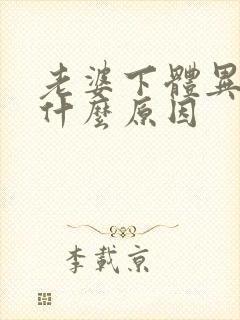 老婆下體異
什麼原因
李載京